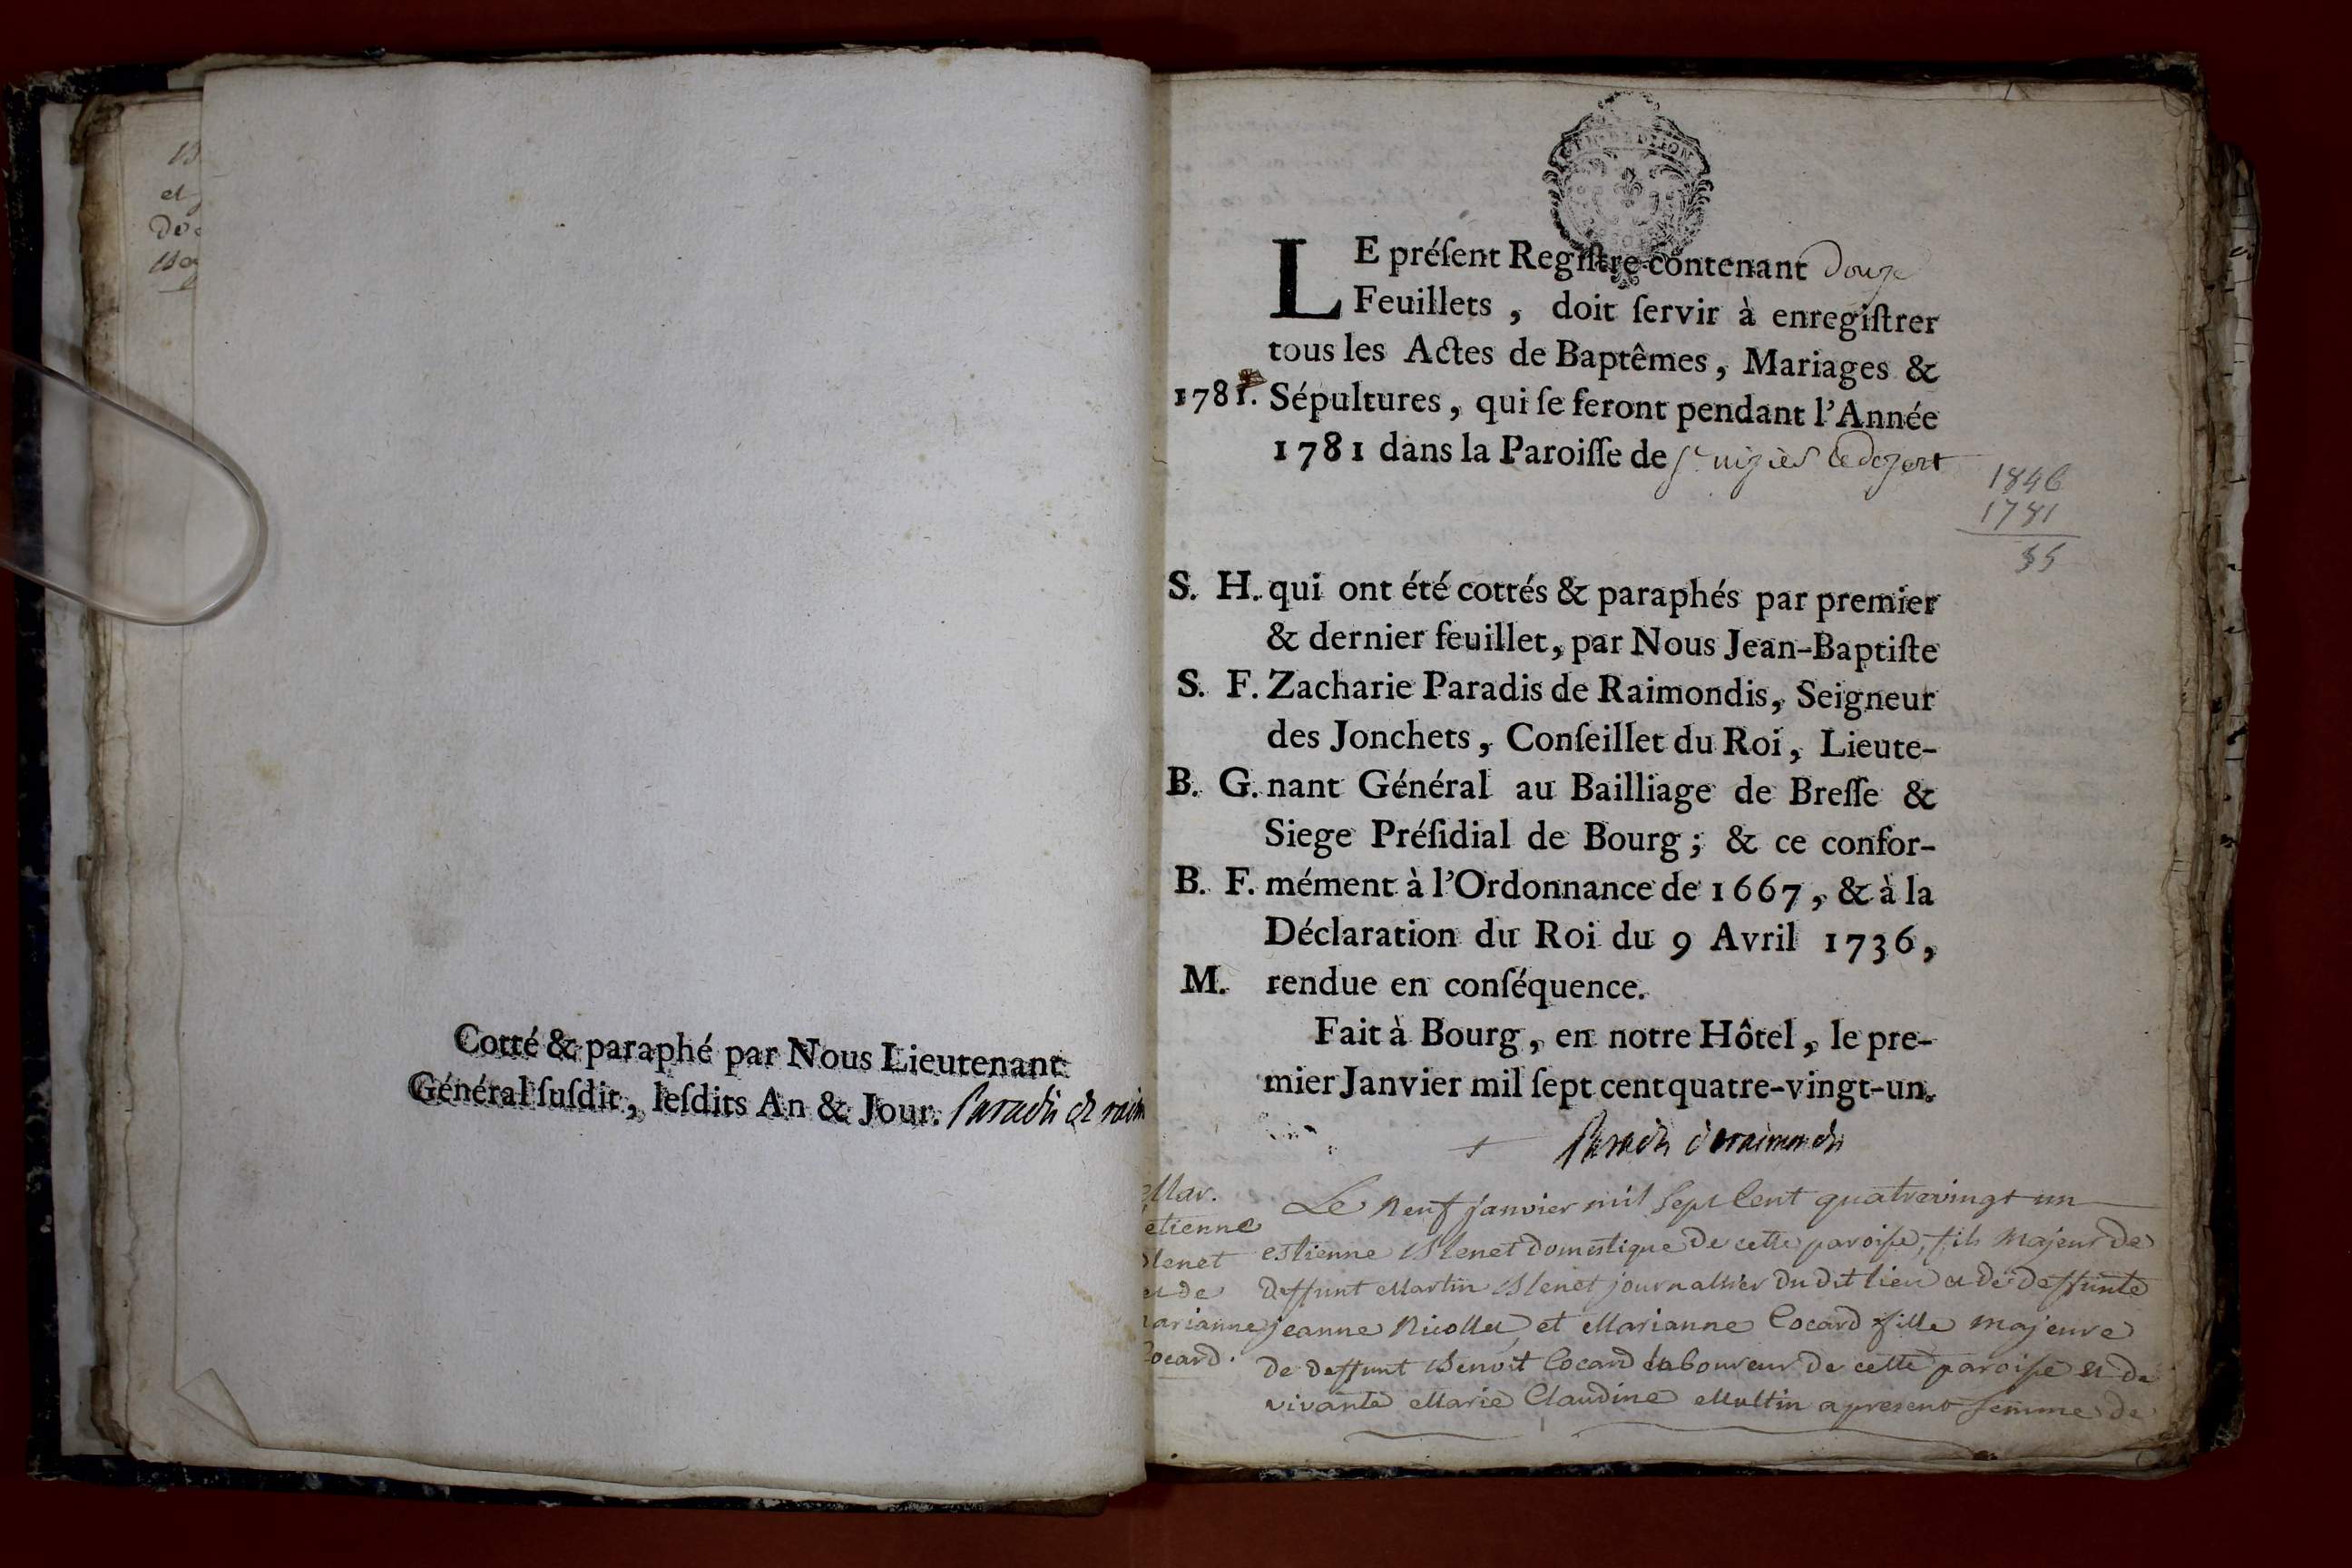 Cotté & paraphé par Nous Lieutenant
Général ſuſdit, leſdits An & Jour. Paradis de raim
LE préſent Regiſtre contenant Douze
Feuillets, doit ſervir à enregiſtrer
tous les Actes de Baptêmes, Mariages &
1781. Sépultures, qui ſe feront pendant l'Année
1781 dans la Paroiſſe de St nizier le dezert
1846
1781
S. H. qui ont été cottés & paraphés par premier
& dernier feuillet, par Nous Jean-Baptiſte
S. F. Zacharie Paradis de Raimondis, Seigneur
des Jonchets, Conſeillet du Roi, Lieute-
B. G. nant Général au Bailliage de Breſſe &
Siege Préſidial de Bourg; & ce confor-
B. F. mément à l'Ordonnance de 1667, & à la
Déclaration du Roi du 9 Avril 1736,
M. rendue en conſéquence.
Fait à Bourg, en notre Hôtel, le pre-
mier Janvier mil ſept cent quatre-vingt-un.
Paradis de raimondis
Mar.
etienne
et de
arianne
ocard.
Le Neuf janvier mil sept Cent quatrevingt un
estienne domestique de cette paroisse, fils majeur de
deffunt Martin journallier du dit lieu et de deffunte
jeanne Nicollet, et Marianne Cocard fille majeure
de deffunt Benoit Cocard laboureur de cette paroisse et de
vivante Marie Claudine Multin apresent femme de